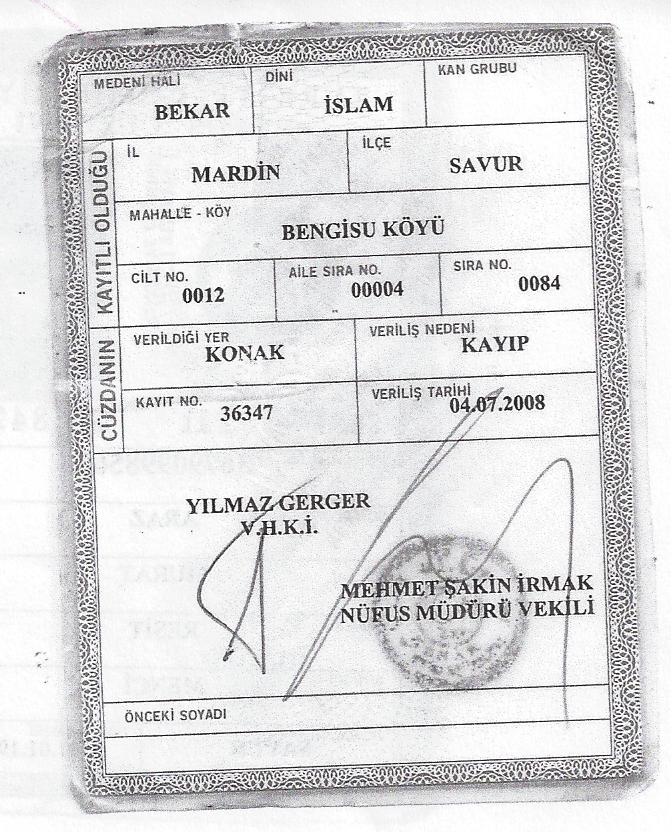 MEDENİ HALİ DİNİ KAN GRUBU
BEKAR İSLAM
KAYITLI OLDUĞU
İL İLÇE
MARDİN SAVUR
MAHALLE - KÖY
BENGİSU KÖYÜ
CİLT NO. AİLE SIRA NO. SIRA NO.
0012 00004 0084
CÜZDANIN
VERİLDİĞİ YER VERİLİŞ NEDENİ
KONAK KAYIP
KAYIT NO. VERİLİŞ TARİHİ
36347 04.07.2008
YILMAZ GERGER
V.H.K.İ.
MEHMET ŞAKİN İRMAK
NÜFUS MÜDÜRÜ VEKİLİ
ÖNCEKİ SOYADI